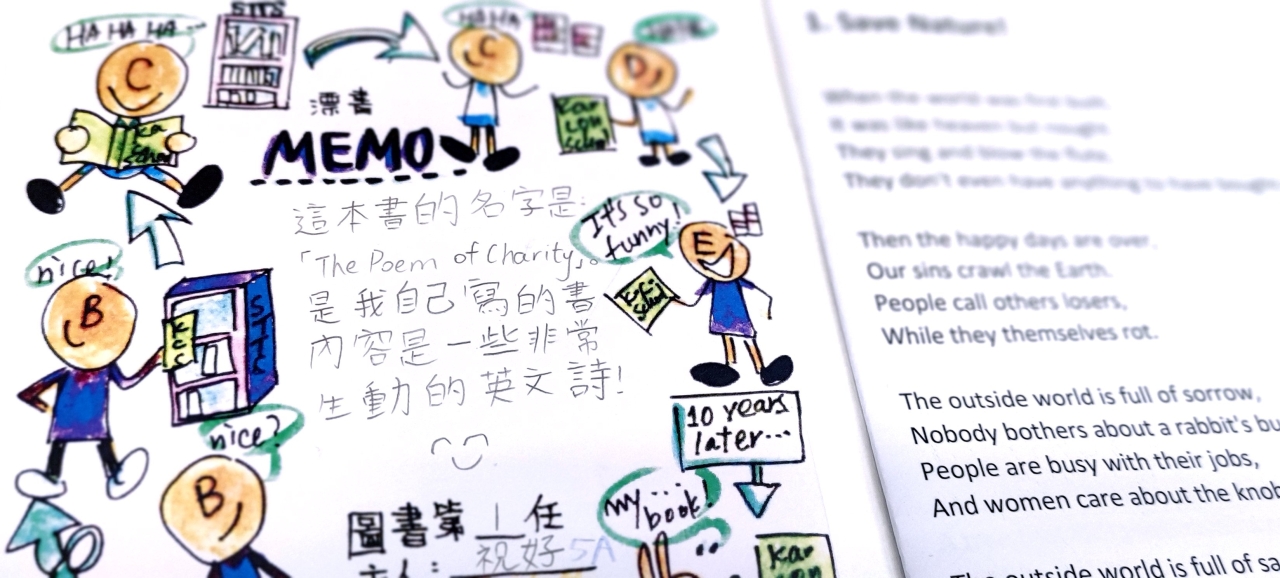 HA HA HA...
STTS
HAHA
漂書
MEMO
C
C
D
Kar
Lon
School
ka
School
這本書的名字是:
「The Poem of Charity」。
是我自己寫的書
內容是一些非常
生動的英文詩!
It's so
funny!
E
School
nice!
B
STTS
nice?
B
10 years
later...
my...
book!
圖書第 1 任
主人: 祝好 5A
Kar
1. Save Nature!
When the world was first built,
It was like heaven but nought.
They sing and blow the flute,
They don't even have anything to have bought
Then the happy days are over,
Our sins crawl the Earth.
People call others losers,
While they themselves rot.
The outside world is full of sorrow,
Nobody bothers about a rabbit's bu
People are busy with their jobs,
And women care about the knob
The outside world is full of sa